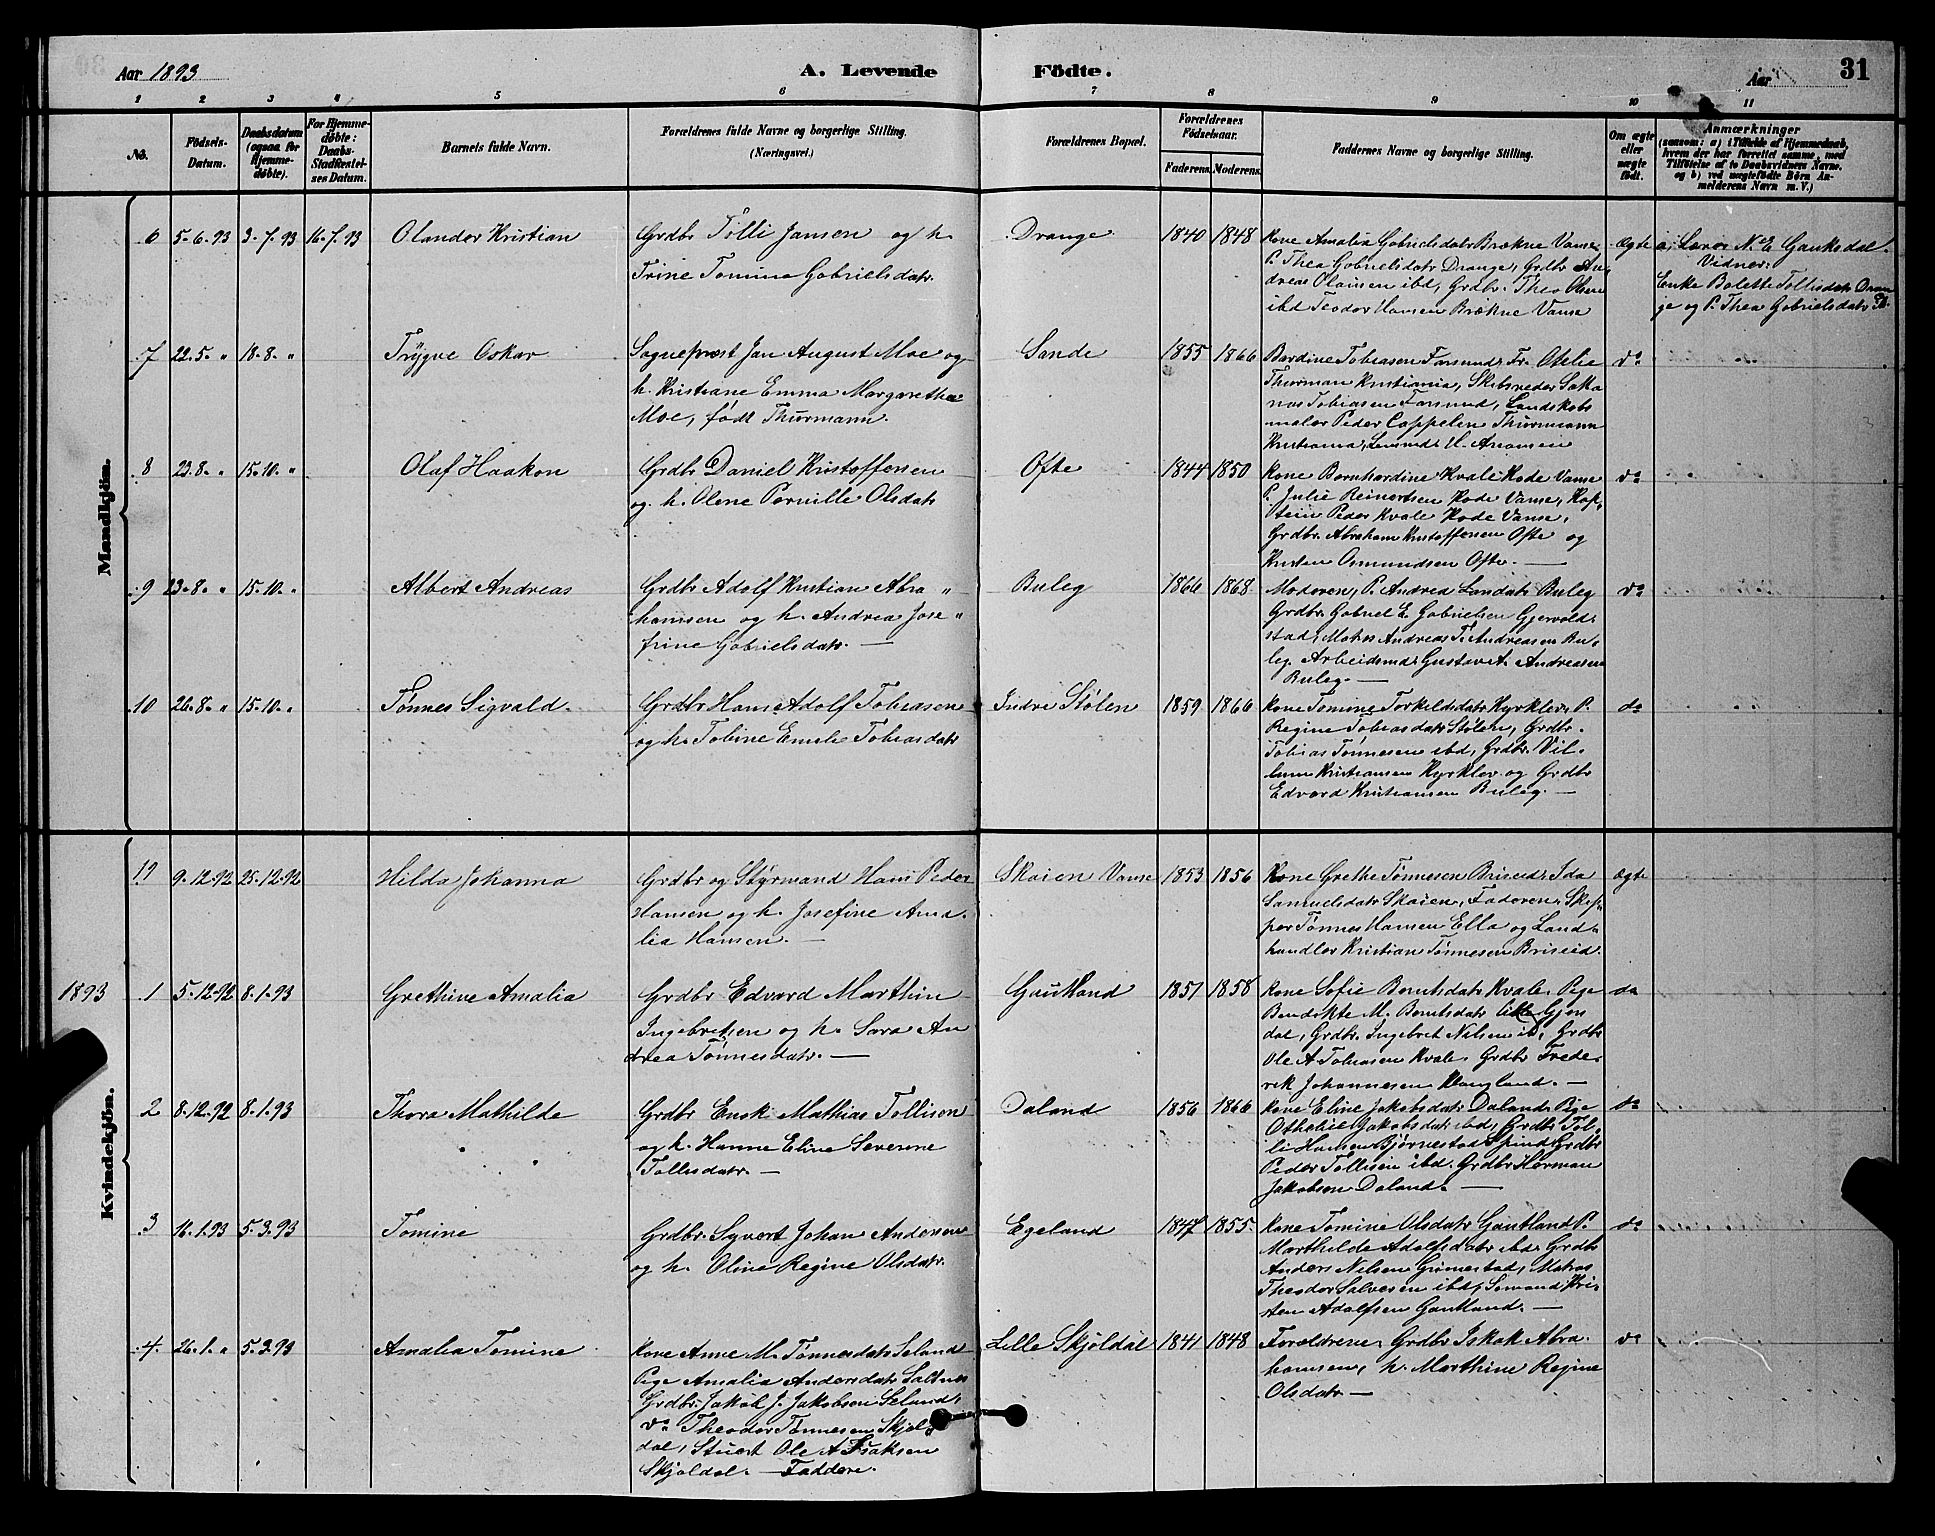 Aar 1893
A. Levende Födte.
Aar
31
1 2 3 4 5 6 7 8 9 10 11
No.
Födsels-Datum.
Daabsdatum (ogsaa for Hjemme-döbte).
For Hjemme-döbte: Daabs-Stadfæstel-ses Datum.
Barnets fulde Navn.
Forældrenes fulde Navne og borgerlige Stilling.
(Næringsvei.)
Forældrenes Bopæl.
Forældrenes Födselsaar.
Faderens. Moderens.
Faddernes Navne og borgerlige Stilling.
Om ægte eller uægte födt.
Anmærkninger
(saasom: a) i Tilfælde af Hjemmedaab,
hvem der har forrettet samme, med
Tilföielse af to Daabsvidners Navne.
og b) ved uægtefödte Börn An-
melderens Navn m. V.)
Mandkjön.
6 5-6-93 3-7-93 16-7-93 Olander Kristian
Grdbr Tölli Jansen og h.
Trine Tomine Gabrielsdatr.
Drange 1840 1848
Kone Amalia Gabrielsdatr Brækne Vanse
P. Thea Gabrielsdatr Drange, Grdbr An-
dreas Olausen ibd, Grdbr. Theo Olsen
ibd Teodor Hansen Brækne Vanse
ægte
a, Lærer N. E. Gauksdal.
Vidner:
Enke Bolette Tollisdatr Dran
ge og P. Thea Gabrielsdatr D.
7 22-5- " 18-8- " Trÿgve Oskar
Sognepræst Jan August Moe og
h. Kristiane Emma Margarethe
Moe, född Thürmann.
Sande 1855 1866
Bardine Tobiasen Farsund, Fr. Otelie
Thurman Kristiania, Skibsreder Saka
rias Tobiasen Farsund, Landskabs
maler Peder Cappelen Thürmann
Kristiania,
do
8 23-8- " 15-10- " Olaf Haakon
Grdbr Daniel Kristoffersen
og h. Olene Pernille Olsdatr
Ofte 1844 1850
Kone Bernhardine Kvale Kode Vanse
P. Julie Reinertsen Kode Vanse, Kap-
tein Peder Kvale Kode Vanse,
Grdbr. Abraham Kristoffersen Ofte og
Kristen Osmundsen Ofte. —
do
9 23-8- " 15-10- " Albert Andreas
Grdbr Adolf Kristian Abra "
hamsen og h. Andrea Jose "
frine Gabrielsdatr. —
Buleg 1866 1868
Moderen, P. Andrea Landatr Buleg
Grdbr. Gabriel E. Gabrielsen Gjervold-
stad, Matros Andreas T. Andreasen Bu-
leg Arbeidsmd. Gustav A. Andreasen
Buleg. —
do
10 26-8- " 15-10- " Tønnes Sigvald.
Grdbr Hans Adolf Tobiasen
og h. Tobine Emelie Tobiasdatr
Indre Stølen 1859 1866
Kone Tomine Torkildsdatr Kyrklev, P.
Regine Tobiasdatr Stølen, Grdbr.
Tobias Tønnesen ibd, Grdbr. Vil-
lum Kristiansen Kyrklev og Grdbr
Edvard Kristiansen Buleg. —
do
Kvindekjön.
19 9-12-92 25-12-92 Hilda Johanna
Grdbr og Stÿrmand Hans Peder
Hansen og h. Josefine Ama-
lia Hansen. —
Skaien Vanse 1853 1856
Kone Grethe Tønnesen Briseid, Ida
Samuelsdatr Skaien, Faderen, Skip-
per Tønnes Hansen Ella og Land-
handler Kristian Tønnesen Briseid.
ægte
1893 1 5-12-92 8-1-93 Grethine Amalia
Grdbr Edvard Marthin
Ingebretsen og h. Sara An
drea Tønnesdatr. —
Gautland 1851 1858
Kone Sofie Berntsdatr Kvale, Pige
Bendikte M. Berntsdatr Lille Gjer
dal, Grdbr. Ingebret Nilsen ib, Grdbr
Ole A Tobiasen Kvale, Grdbr Frede-
rik Johannesen Haugland. —
do
2 8-12-92 8-1-93 Thora Mathilde
Grdbr Enok Mathias Tollisen
og h. Hanne Eline Severine
Tollisdatr. —
Daland 1856 1866
Kone Eline Jakobsdatr Daland, Pige
Othelie Jakobsdatr ibd, Grdbr Tol-
li Hansen Bjørnestad Spind, Grdbr
Peder Tollisen ibd. Grdbr Herman
Jakobsen Daland. —
do
3 16-1-93 5-3-93 Tomine
Grdbr. Syvert Johan Andersen
og h. Oline Regine Olsdatr.
Egeland 1847 1855
Kone Tomine Olsdatr Gautland P.
Marthilde Adolfsdatr ibd, Grdbr
Anders Nilsen Grimestad, Matros
Theodor Salvesen ibd, Sømand Kri-
sten Adolfsen Gautland. —
do
4 26-1- " 5-3-93 Amalia Tomine
Kone Anne M. Tønnesdatr Seland
Pige Amalia Andersdatr Saltnes
Grdbr. Jakob J. Jakobsen Seland,
do Theodor Tønnesen Skjol-
dal, Stuert Ole A Isaksen
Skjoldal. — Faddere.
Lille Skjöldal 1841 1848
Forældrene, Grdbr Iskak Abra-
hamsen, h. Marthine Regine
Olsdatr —
do